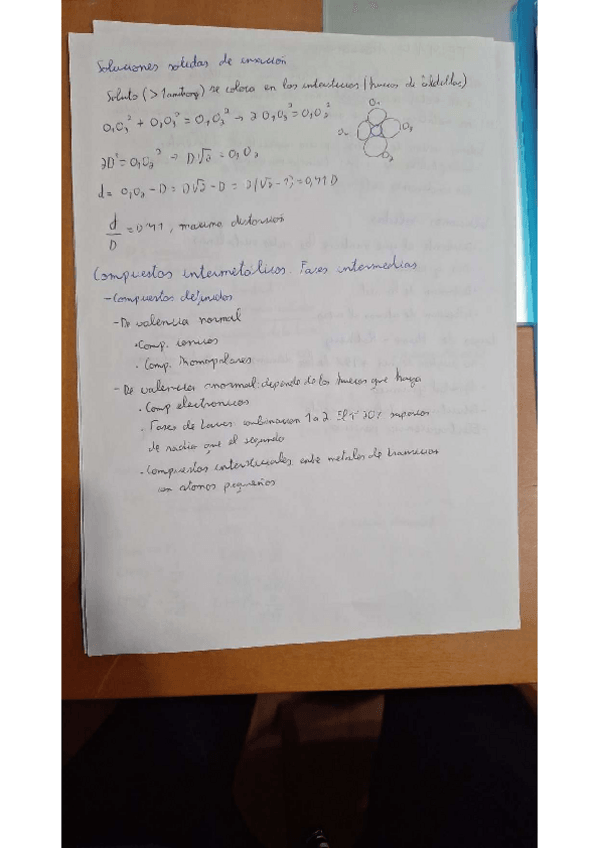 Soluciones solidas de inserción
Soluto (> 1 amstrong) se coloca en los intersticios (huecos de celdillas)
O₁O₂² + O₁O₂² = O₁O₃² → 2 O₁O₂² = O₁O₃²
O₁
O₂
O₃
2D² = O₁O₃² → D√2 = O₁O₃
d = O₁O₃ - D = D√2 - D = D(√2 - 1) = 0,41 D
d/D = 0'41, maxima distorsión
Compuestos intermetálicos. Fases intermedias
- Compuestos definidos
- De valencia normal
· Comp. ionicos
· Comp. homopolares
- De valencia anormal: depende de los huecos que haya
· Comp electronicos
· Fases de Laves: combinacion 1 a 2. El 1º 20% superior
de radio que el segundo
· Compuestos intersticiales, entre metales de transicion
con atomos pequeños